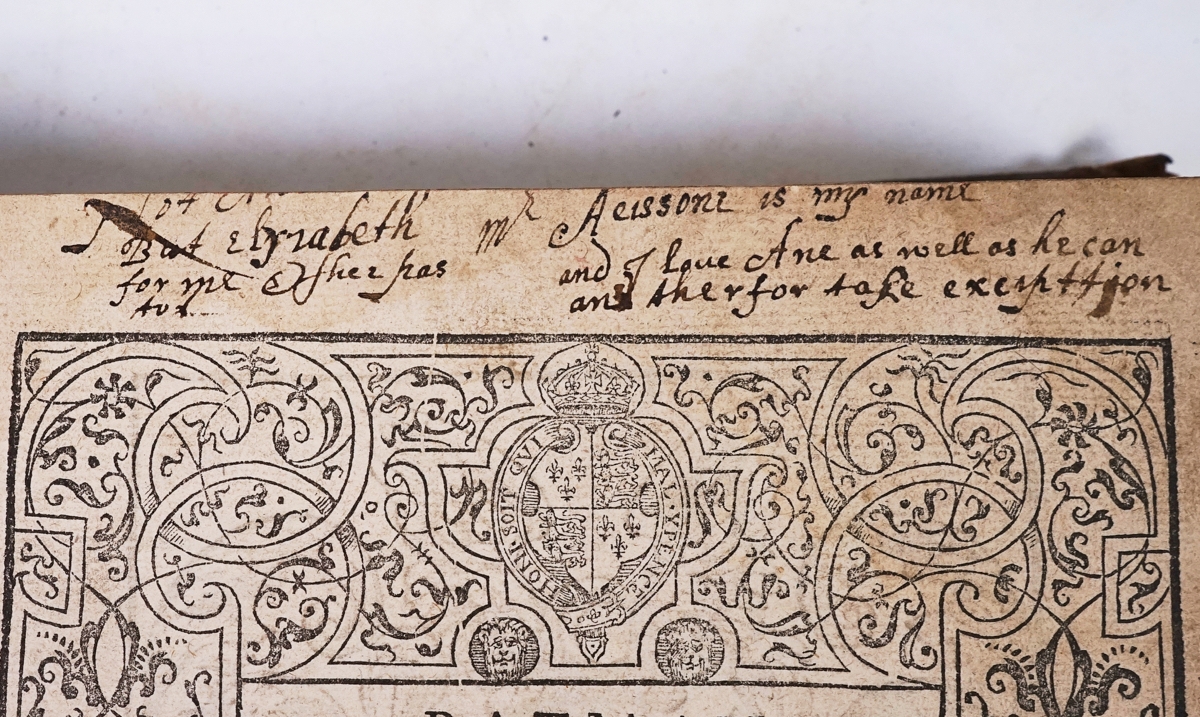 But Elyzabeth
for me & shee has
tox
Mr Aeissone is my name
and J love Ane as well as he can
and therfor take excepttjon
HONI · SOIT QVI MAL · Y PENCE